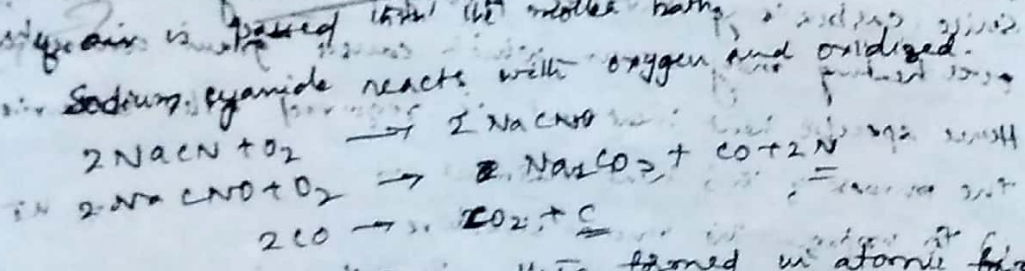 air is passed the molten bath,
Sodium cyanide reacts with oxygen and oxidized.
2NaCN + O2 → 2 NaCNO
2 NaCNO + O2 → Na2CO3 + CO + 2N
2CO → CO2 + C
formed in atomic